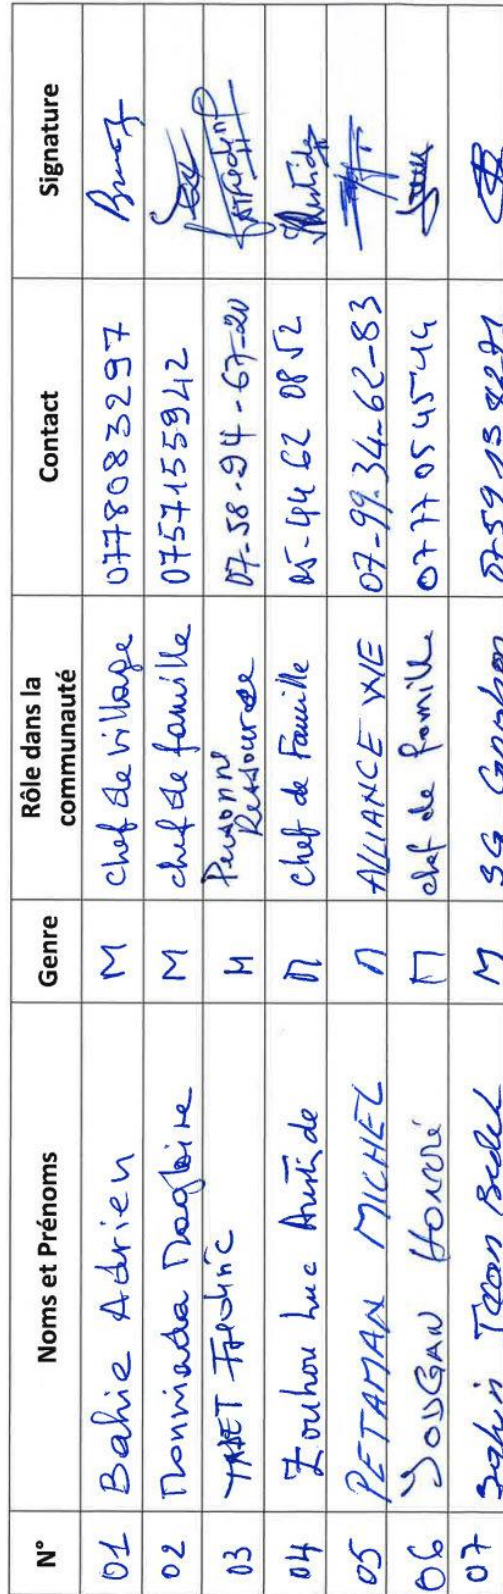 N° Noms et Prénoms Genre Rôle dans la communauté Contact Signature
01 Bahie Adrien M chef de village 0778083297
02 Magloire M chef de famille 0757155942
03 Frédéric M Personne Ressource 07-58-94-67-20
04 Zouhou Luc Aristide M chef de Famille 05-44 62 08 52
05 PETAMAN MICHEL M ALLIANCE WE 07-99-34-62-83
06 YOUGAN Honoré M chef de famille 0777054544
07 M SG